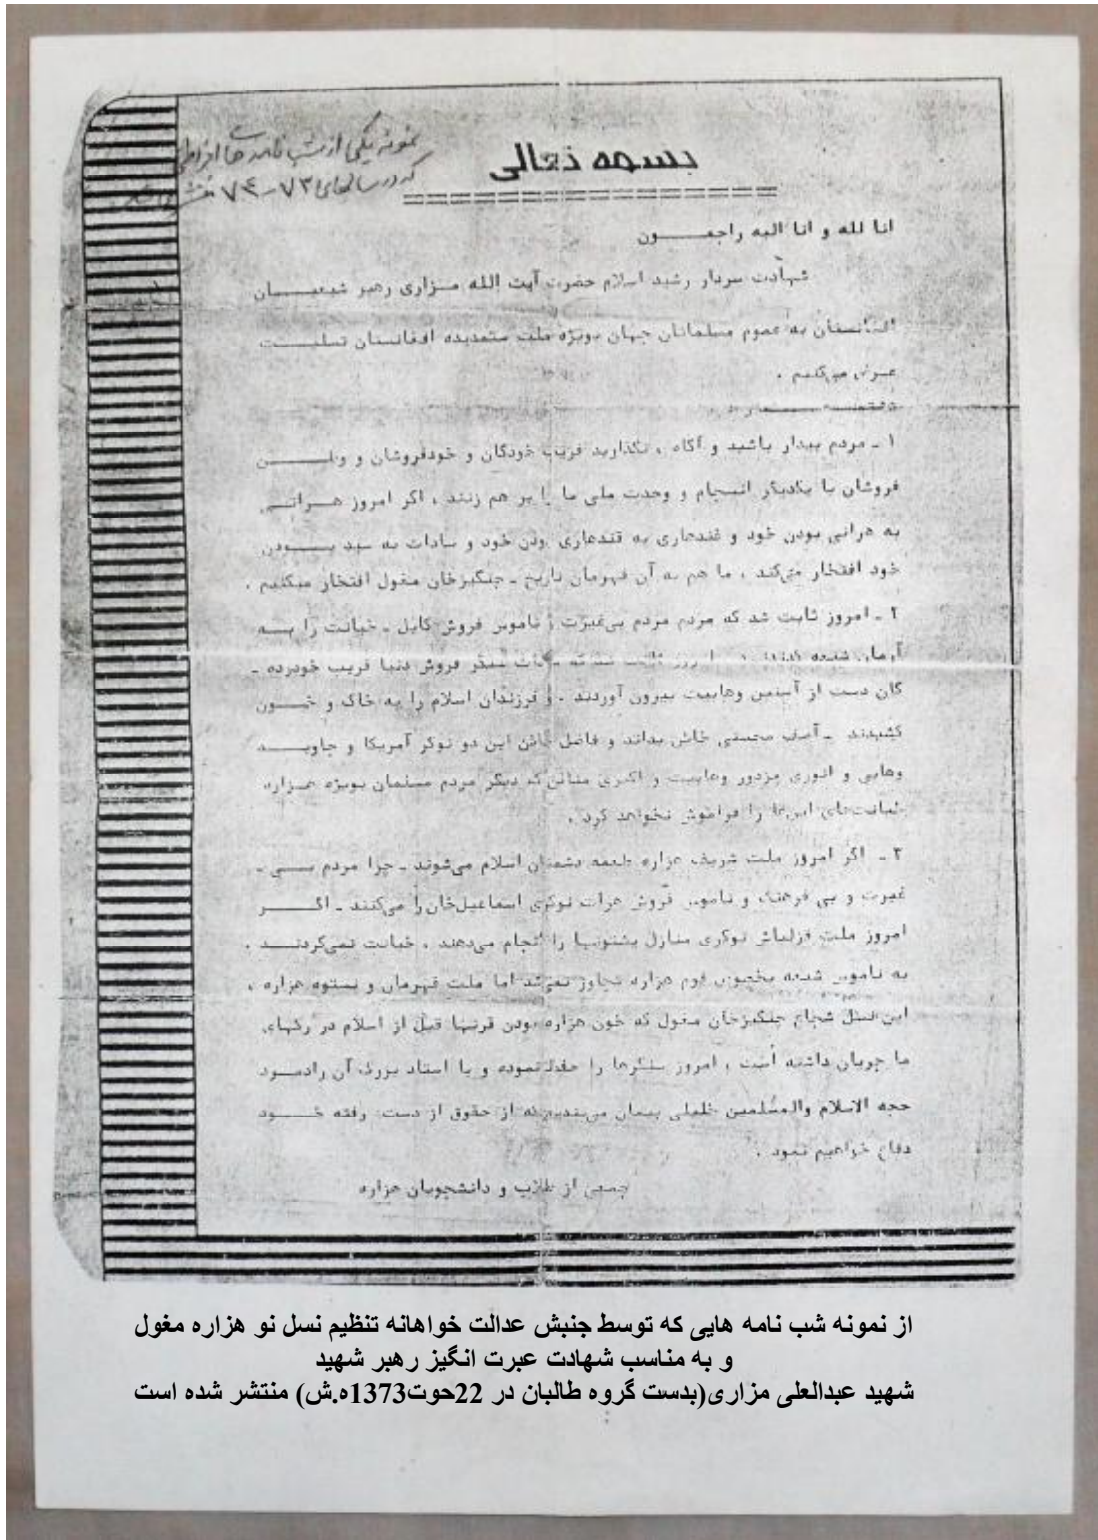 نمونه یکی از شب نامه های افراطی
که در سالهای ۷۳-۷۴
بسمه تعالی
انا لله و انا الیه راجعـــون
شهادت سردار رشید اسلام حضرت آیت الله مزاری رهبر شیعیـــان
افغانستان به عموم مسلمانان جهان بویژه ملت ستمدیده افغانستان تسلیـــت
عرض میکنیم .
۱ ـ مردم بیدار باشید و آگاه ، نگذارید فریب خوردگان و خودفروشان و وطـــن
فروشان با یکدیگر انسجام و وحدت ملی ما را بر هم زنند ، اگر امروز هـراتـی
به هراتی بودن خود و قندهاری به قندهاری بودن خود و سادات به سید بـــودن
خود افتخار می‌کند ، ما هم به آن قهرمان تاریخ ـ چنگیزخان مغول افتخار میکنیم .
۲ ـ امروز ثابت شد که مردم مردم بی‌غیرت و ناموس فروش کابل ـ خیانت را بـــه
آرمان شیعه سنگر فروش دنیا فریب خورده ـ
گان دست از آستین وهابیت بیرون آوردند . و فرزندان اسلام را به خاک و خـــون
کشیدند ـ آصف محسنی خائن بداند و فاضل خائن این دو نوکر آمریکا و جاویـــد
وهابی و انوری مزدور وهابیت و اکبری منافق که دیگر مردم مسلمان بویژه هـزاره
خیانت‌های این‌ها را فراموش نخواهد کرد .
۳ ـ اگر امروز ملت شریف هزاره طعمه دشمنان اسلام می‌شوند ـ چرا مردم بـــی ـ
غیرت و بی فرهنگ و ناموس فروش هرات نوکری اسماعیل‌خان را می‌کنند ـ اگـــر
امروز ملت قزلباش نوکری منازل پشتونها را انجام می‌دهند ، خیانت نمی‌کردنـــد .
به ناموس شیعه بخصوص قوم هزاره تجاوز نمی‌شد اما ملت قهرمان و بستوه هزاره ،
این نسل شجاع چنگیزخان مغول که خون هزاره بودن قرنها قبل از اسلام در رگهای
ما جریان داشته است ، امروز سنگرها را حفظ نموده و با استاد بزرگ آن رادمـــرد
حجه الاسلام والمسلمین خلیلی پیمان می‌بندیم که از حقوق از دست رفته خـــود
دفاع خواهیم نمود .
جمعی از طلاب و دانشجویان هزاره
از نمونه شب نامه هایی که توسط جنبش عدالت خواهانه تنظیم نسل نو هزاره مغول
و به مناسب شهادت عبرت انگیز رهبر شهید
شهید عبدالعلی مزاری(بدست گروه طالبان در 22حوت1373ه.ش) منتشر شده است